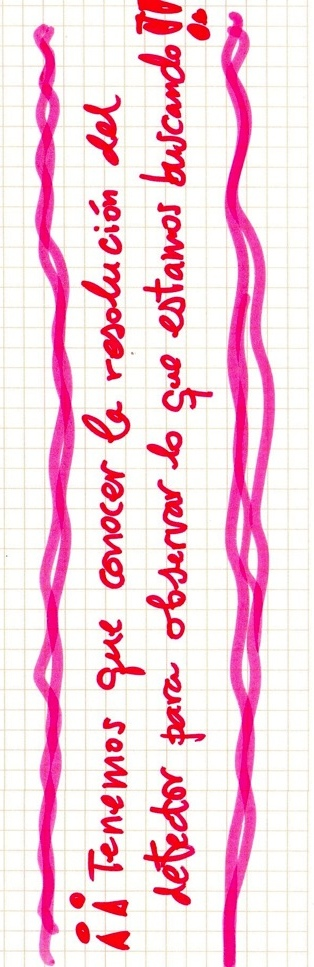 ¡¡ Tenemos que conocer la resolución del
detector para observar lo que estamos buscando !!